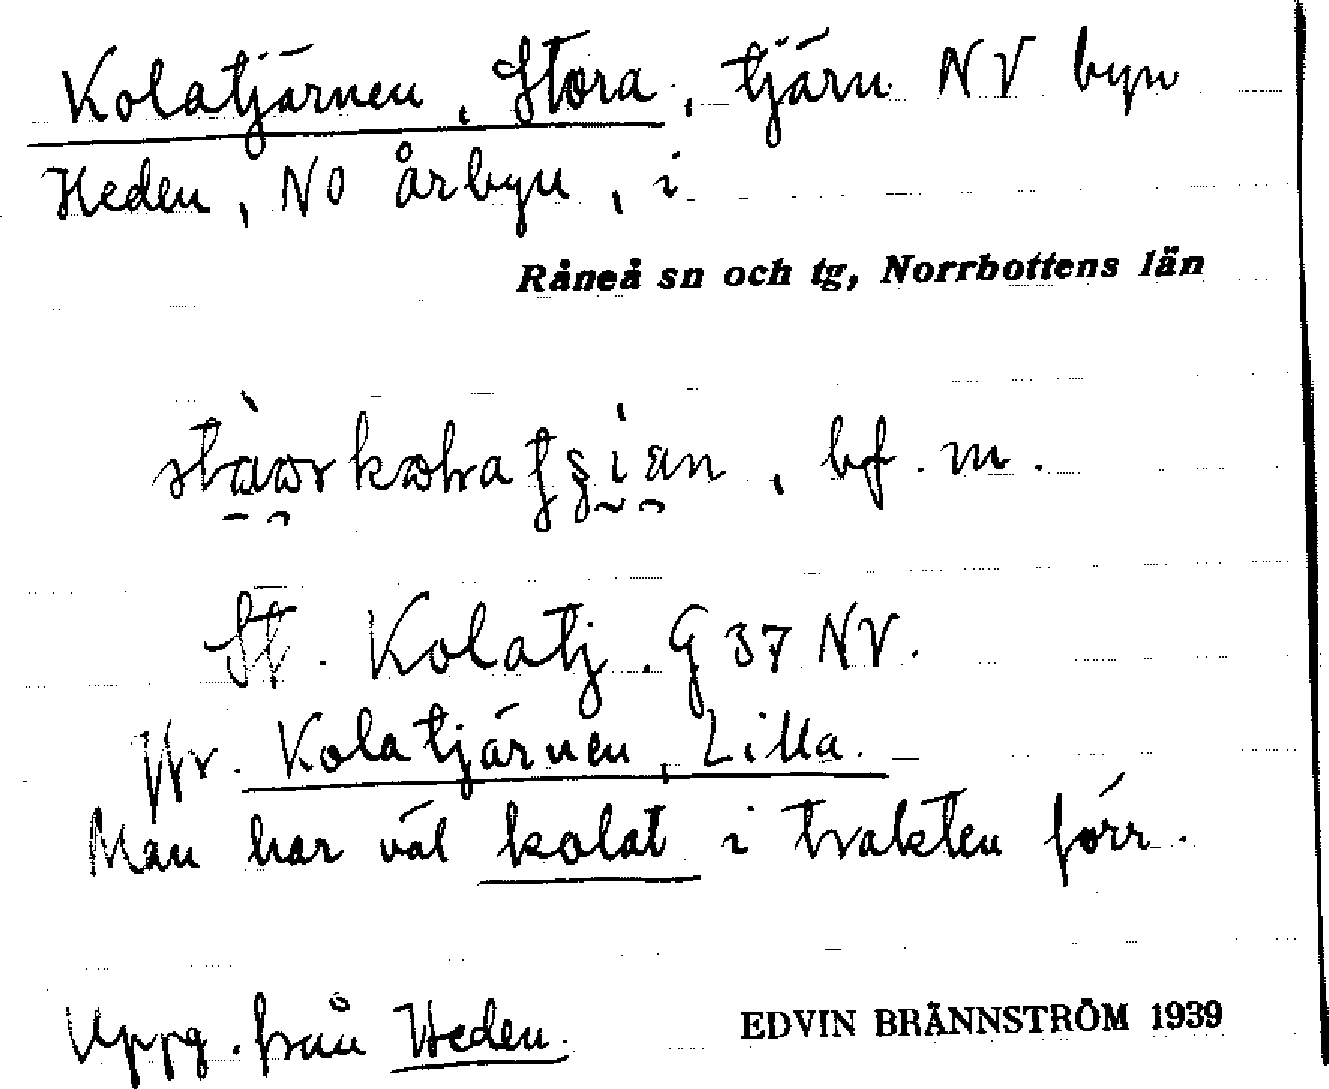 Kolatjärnen, Stora, tjärn NV byn
Heden, NO Årbyn, i
Råneå sn och tg, Norrbottens län
bf. m.
St. Kolatj. G 37 NV.
Jfr. Kolatjärnen, Lilla.
Man har väl kolat i trakten förr.
Uppg. från Heden.
EDVIN BRÄNNSTRÖM 1939